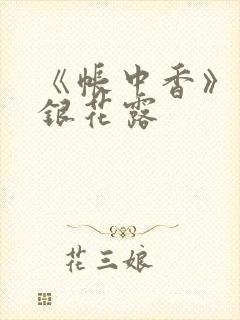 《帐中香》
银花露
花三娘